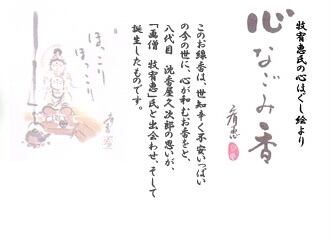 牧宥恵氏の心ほぐし絵より
心なごみ香
宥恵
このお線香は、世知辛く不安いっぱい
の今の世に、心が和むお香をと、
八代目 沈香屋久次郎の思いが、
「画僧 牧宥恵」氏と出会わせ、そして
誕生したものです。
ほっこり
ほっこり